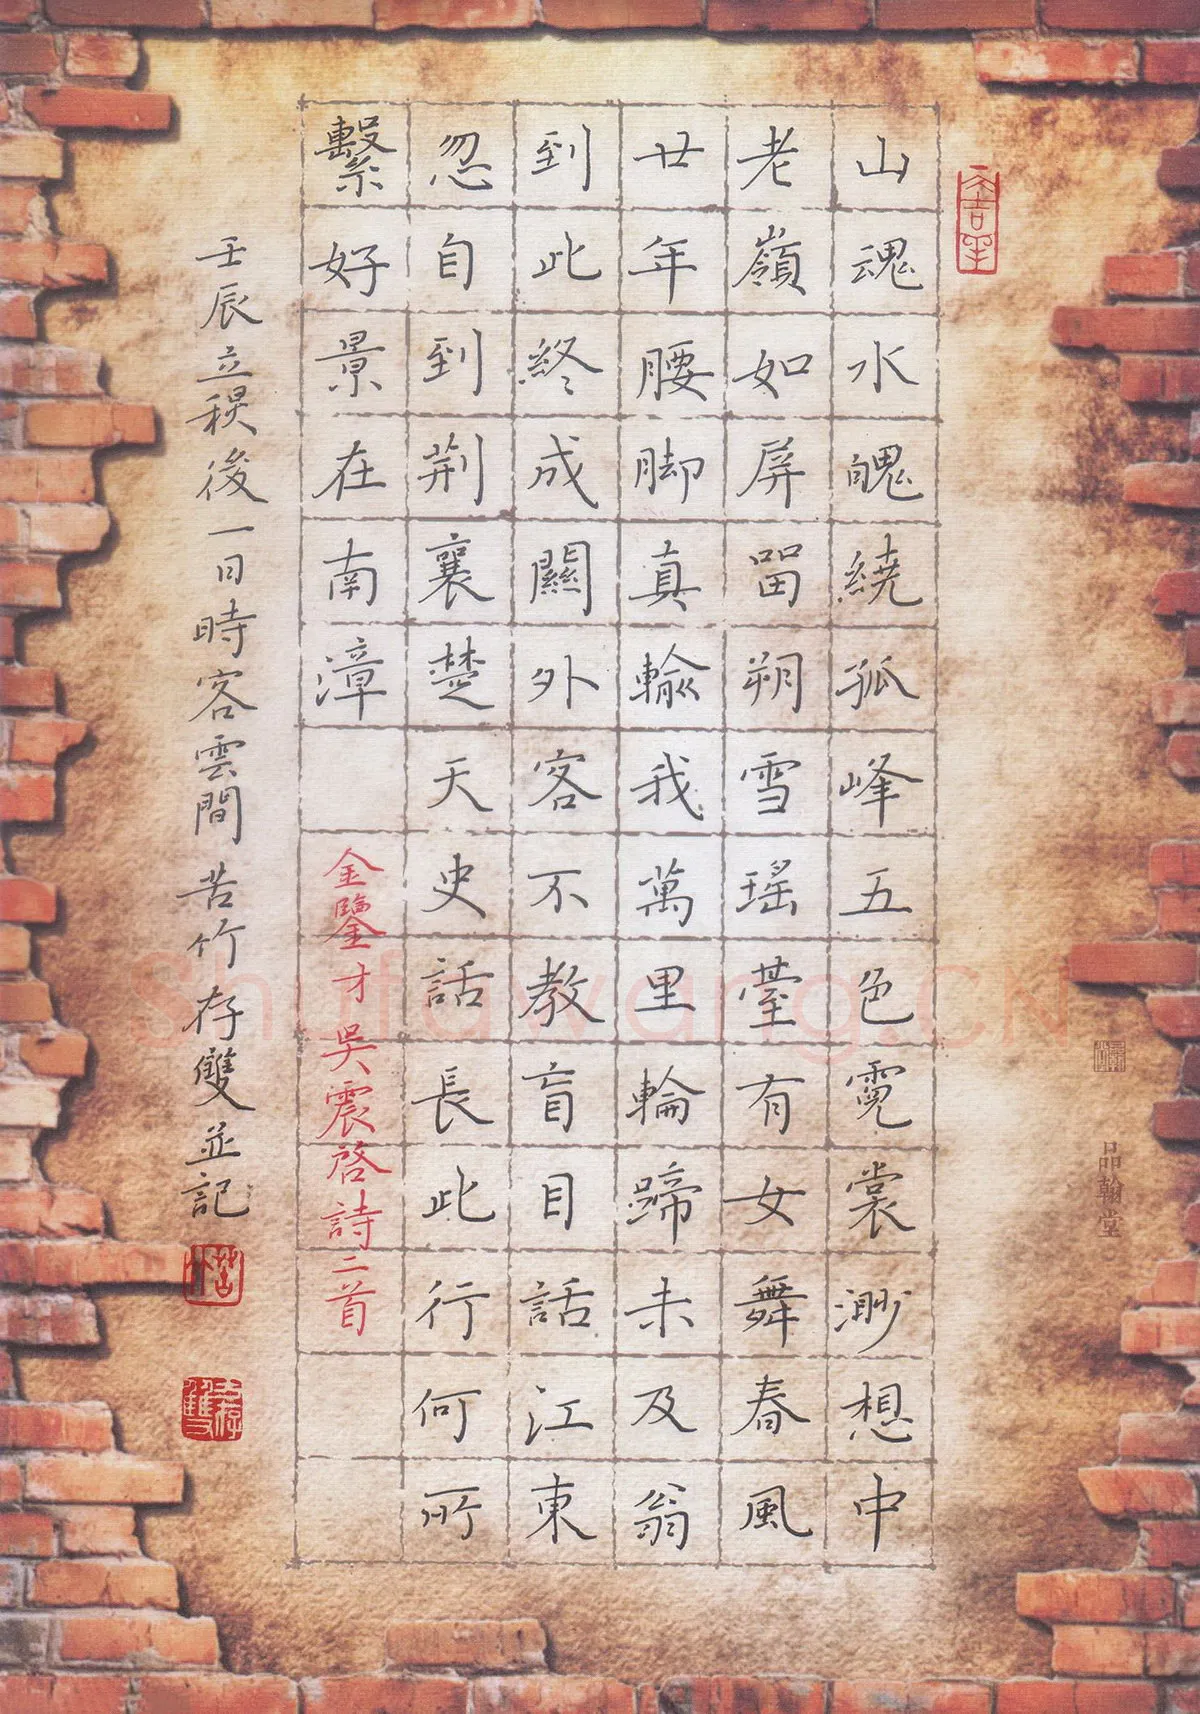 山魂水魄繞孤峰五色霓裳渺想中
老嶺如屏畱朔雪瑤臺有女舞春風
廿年腰脚真輸我萬里輪蹄未及翁
到此終成關外客不教盲目話江東
忽自到荆襄楚天史話長此行何所
繫好景在南漳
金鑒才吳震啓詩二首
壬辰立秋後一日時客雲間苦竹存雙並記
品翰堂
Shufawang.CN